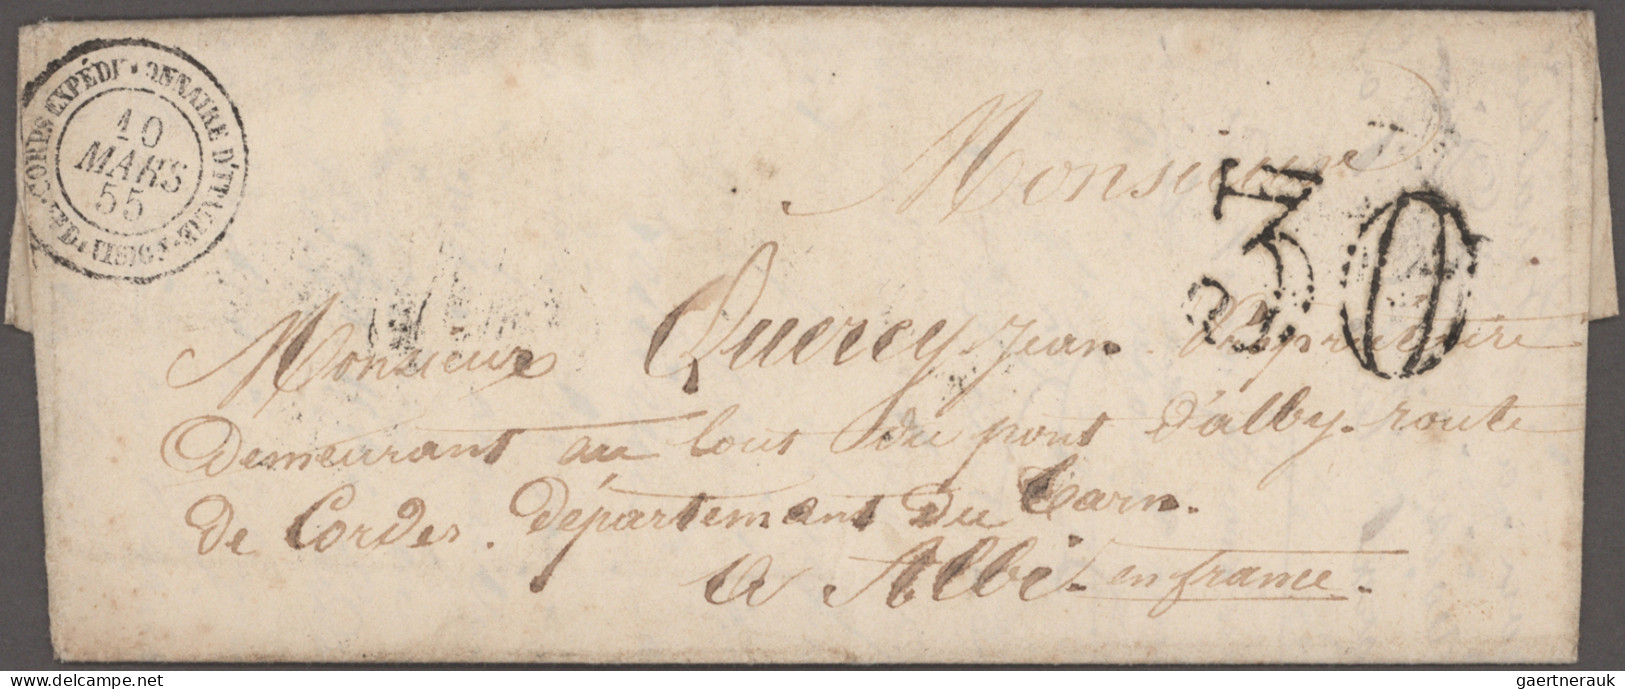 CORPS EXPÉDITIONNAIRE D'ITALIE
10
MARS
55
30
Monsieur
Monsieur Quercy Jean Propriétaire
Demeurant au bout du pont d'alby. route
de Cordes. Département du Tarn.
a Albi. en france.
delcampe.net
gaertnerauk